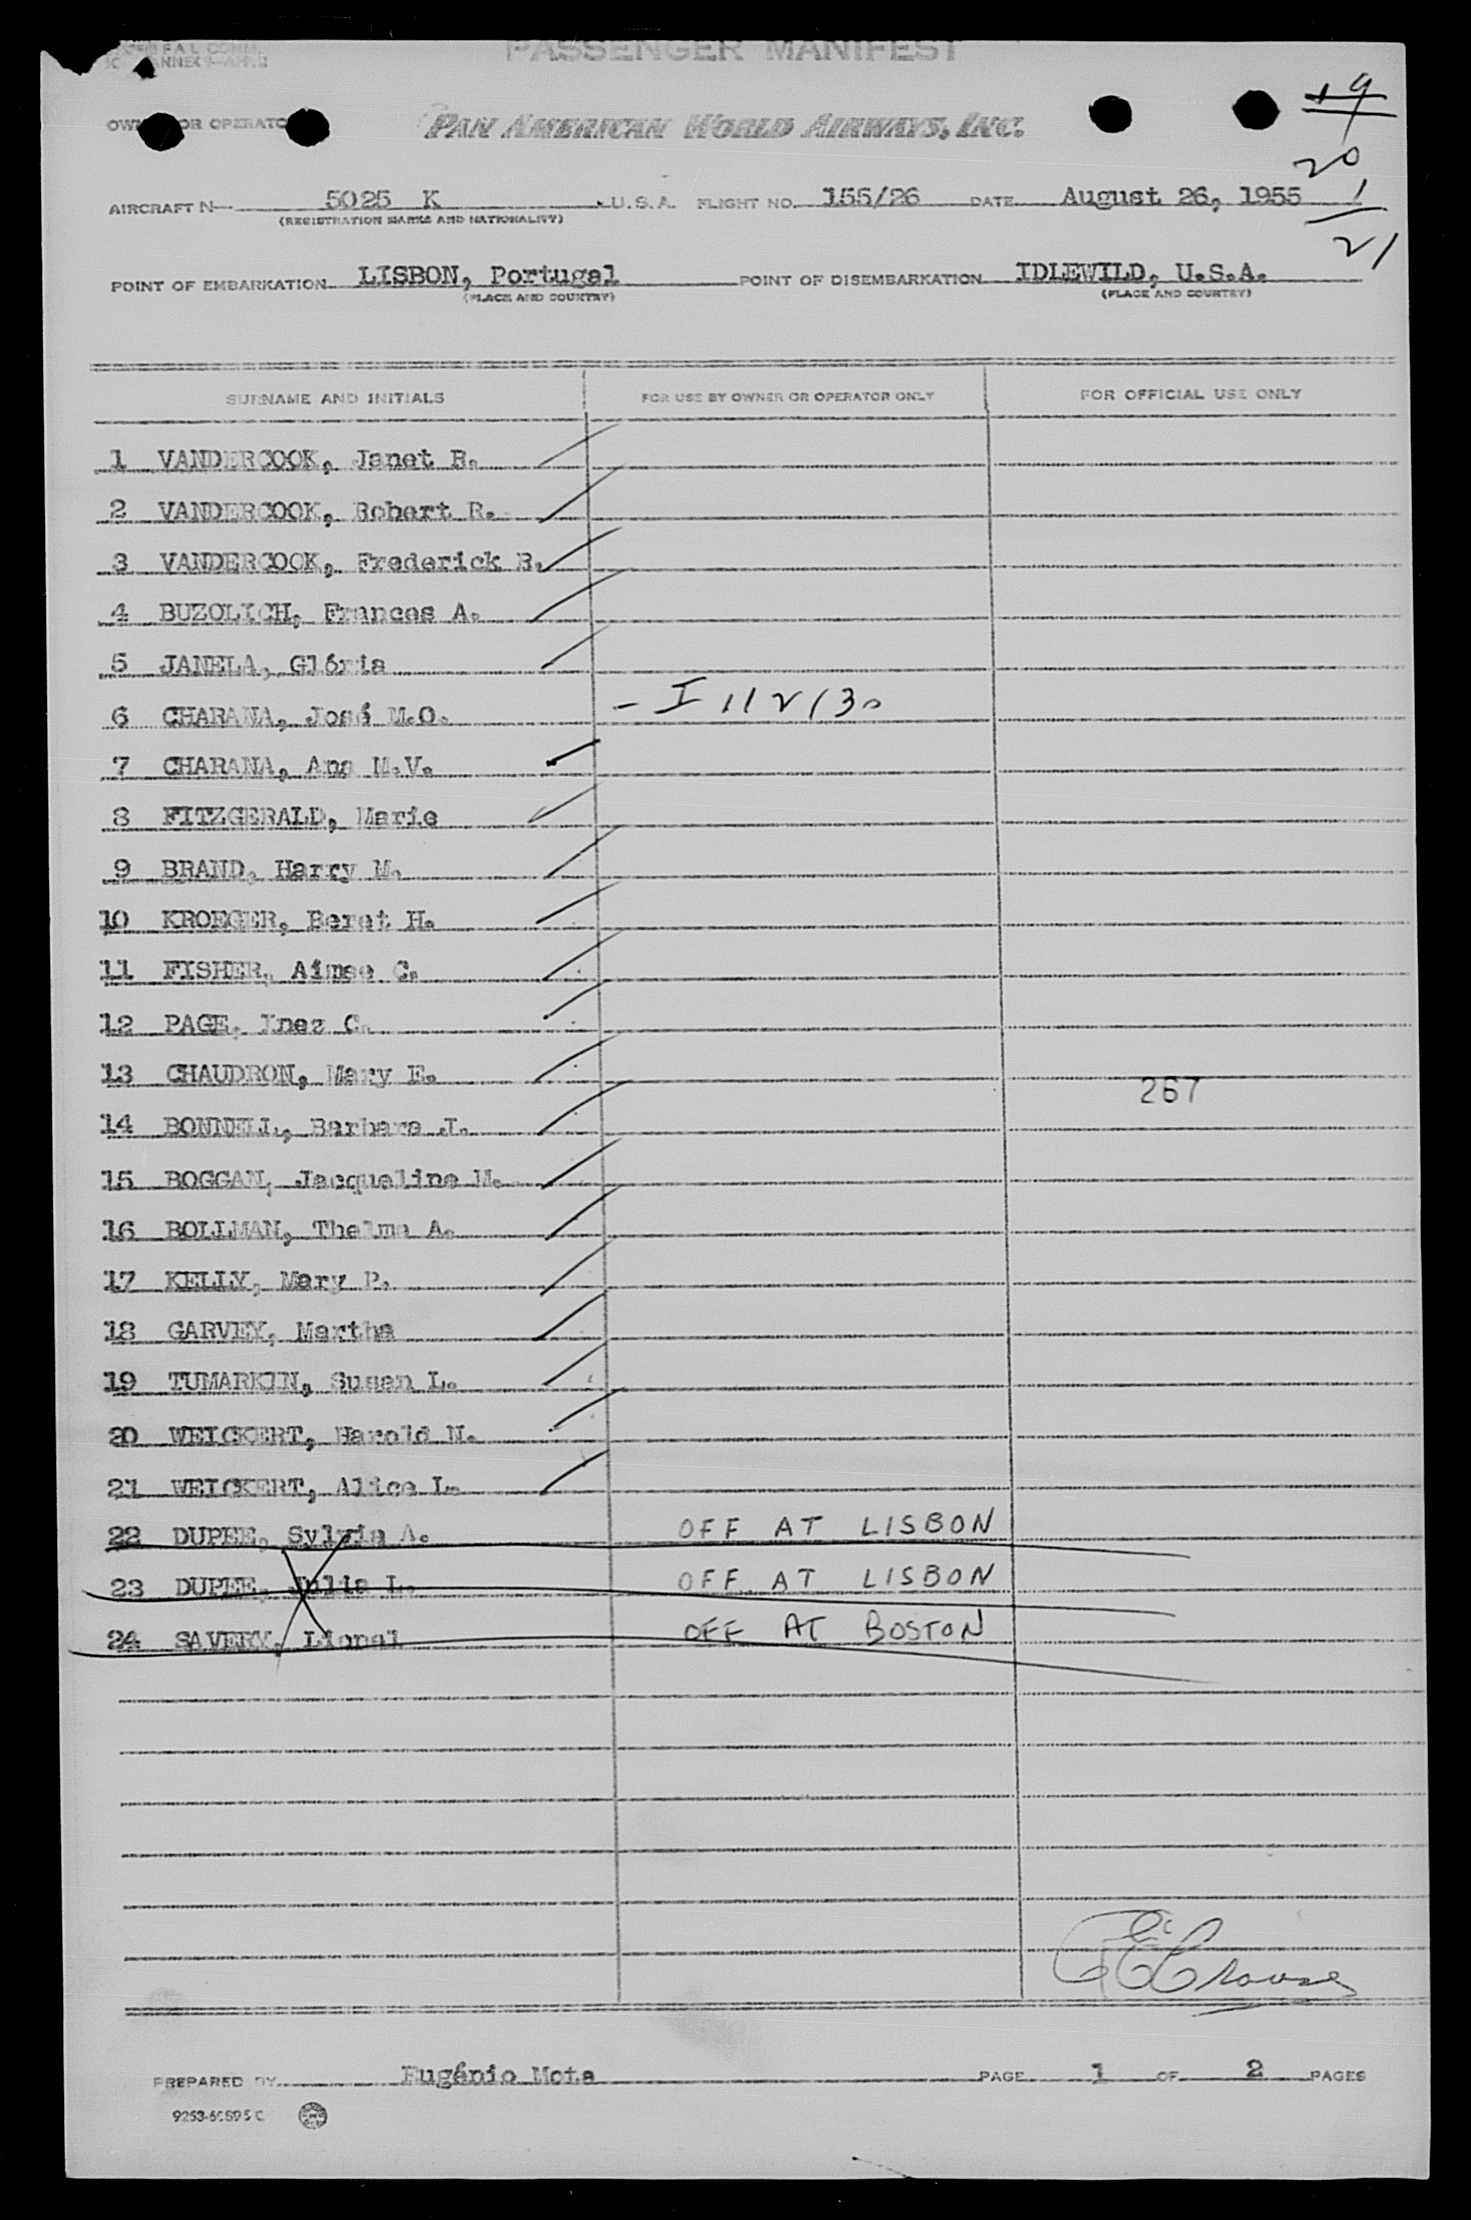 PASSENGER MANIFEST
19
OWNER OR OPERATOR PAN AMERICAN WORLD AIRWAYS, INC.
20
AIRCRAFT N 5025 K U.S.A. FLIGHT NO. 155/26 DATE August 26, 1955 1
(REGISTRATION MARKS AND NATIONALITY)
21
POINT OF EMBARKATION LISBON, Portugal POINT OF DISEMBARKATION IDLEWILD, U.S.A.
(PLACE AND COUNTRY) (PLACE AND COUNTRY)
SURNAME AND INITIALS FOR USE BY OWNER OR OPERATOR ONLY FOR OFFICIAL USE ONLY
1 VANDERCOOK, Janet B.
2 VANDERCOOK, Robert R.
3 VANDERCOOK, Frederick B.
4 BUZOLICH, Frances A.
5 JANELA, Glória
6 CHARANA, José M.O. - I 112130
7 CHARANA, Ana M.V.
8 FITZGERALD, Marie
9 BRAND, Harry M.
10 KROEGER, Beret H.
11 FISHER, Aimee C.
12 PAGE, Inez C.
13 CHAUDRON, Mary E.
267
14 BONNELL, Barbara J.
15 BOGGAN, Jacqueline M.
16 BOLLMAN, Thelma A.
17 KELLY, Mary P.
18 GARVEY, Martha
19 TUMARKIN, Susan L.
20 WEICKERT, Harold N.
21 WEICKERT, Alice L.
22 DUPEE, Sylvia A. OFF AT LISBON
23 DUPEE, Julia L. OFF AT LISBON
24 SAVERY, Lionel OFF AT BOSTON
PREPARED BY Eugénio Mota PAGE 1 OF 2 PAGES